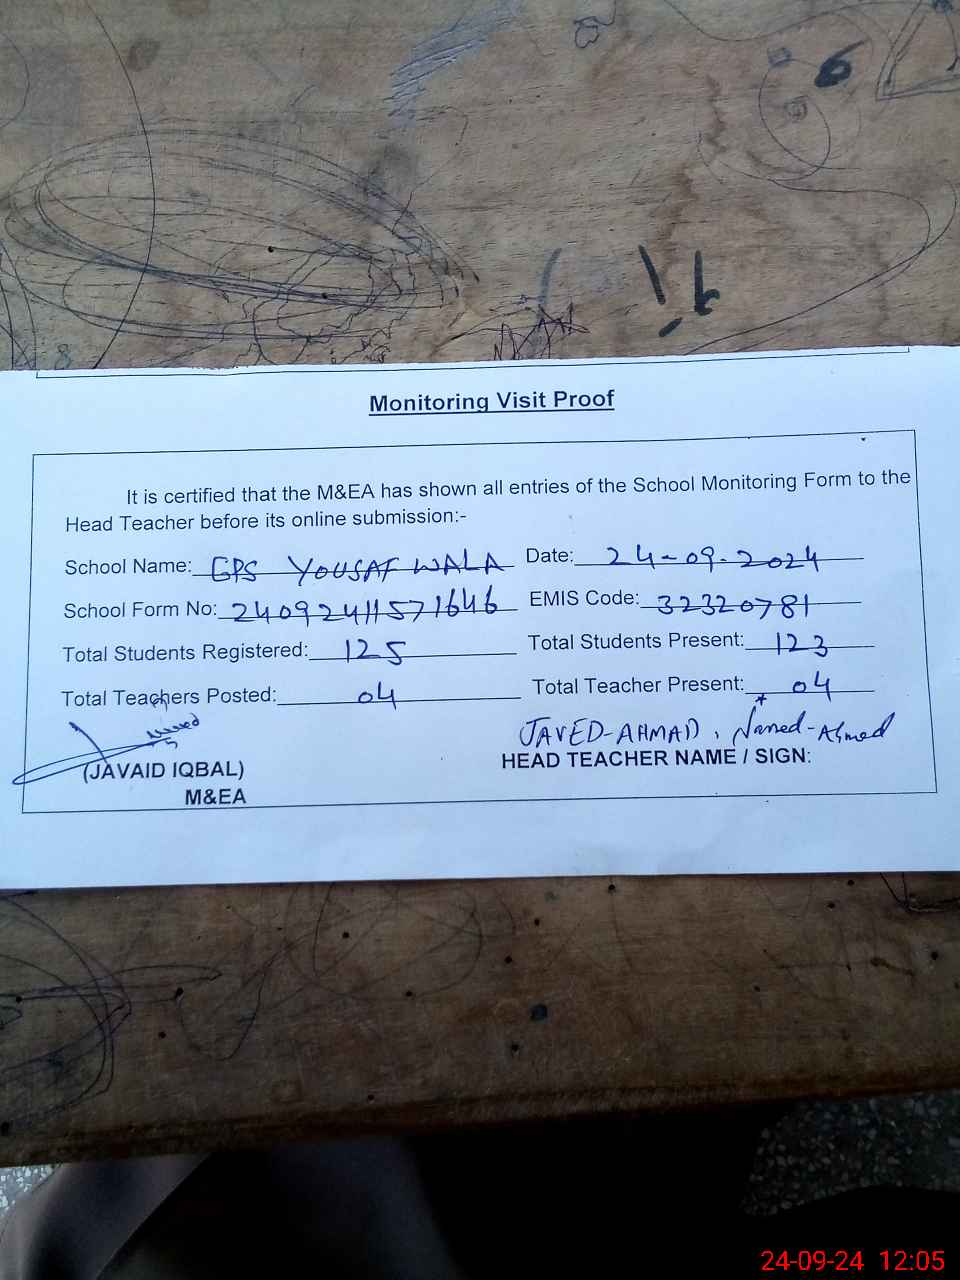 6
Monitoring Visit Proof
It is certified that the M&EA has shown all entries of the School Monitoring Form to the
Head Teacher before its online submission:-
School Name: GPS YOUSAF WALA Date: 24-09-2024
School Form No: 24092411571646 EMIS Code: 32320781
Total Students Registered: 125 Total Students Present: 123
Total Teachers Posted: 04 Total Teacher Present: 04
JAVED-AHMAD,
(JAVAID IQBAL) HEAD TEACHER NAME / SIGN:
M&EA
24-09-24 12:05